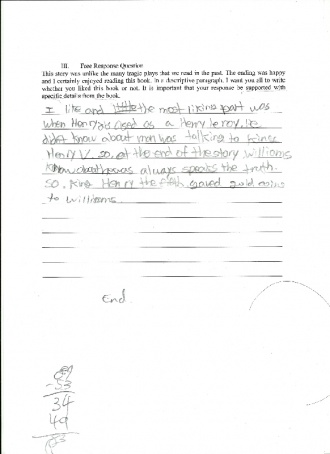 III. Free Response Question
This story was unlike the many tragic plays that we read in the past. The ending was happy
and I certainly enjoyed reading this book. In a descriptive paragraph, I want you all to write
whether you liked this book or not. It is important that your response be supported with
specific details from the book.
I like and the most liking part was
when Henry used as a Henry le roy. He
didn't know about man was talking to
Henry V. so, at the end of the story williams
know was always speaks the truth.
so, King Henry the fifth gaved
to williams
End.
- 53
34
49